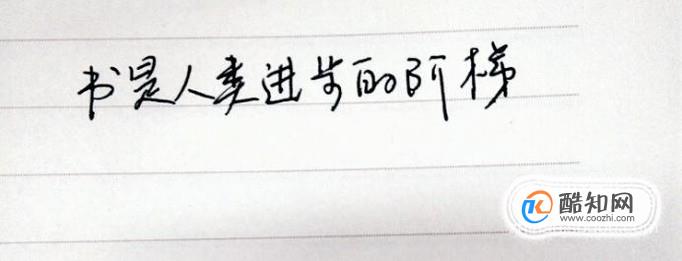 书是人类进步的阶梯
酷知网
www.coozhi.com